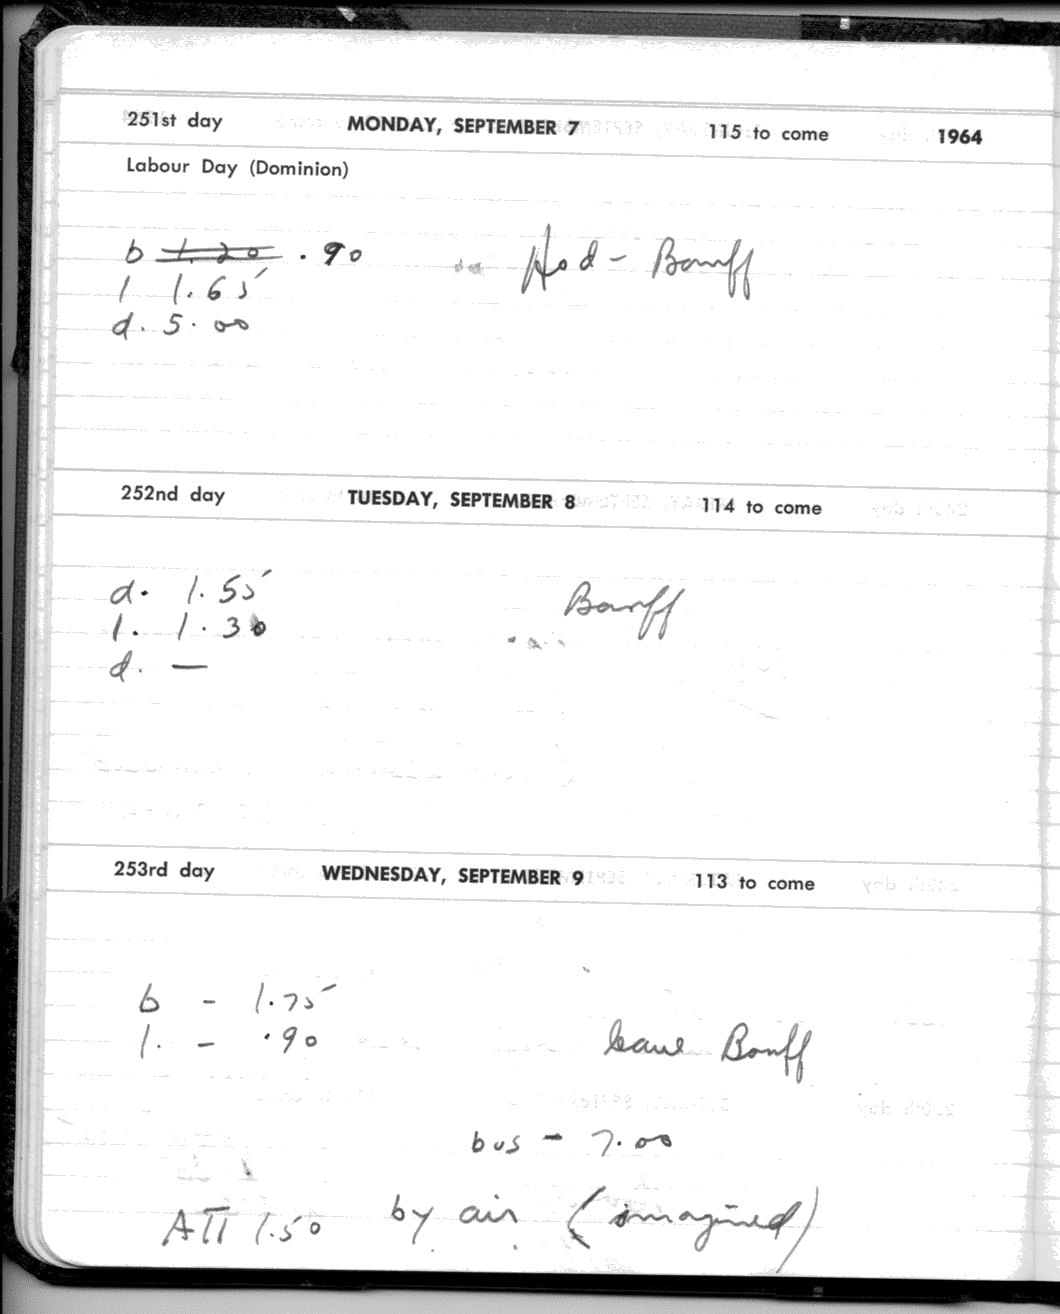 251st day MONDAY, SEPTEMBER 7 115 to come 1964
Labour Day (Dominion)
b 1.20 .90 Hod - Banff
l 1.65
d. 5.00
252nd day TUESDAY, SEPTEMBER 8 114 to come
d. 1.55 Banff
l. 1.30
d. —
253rd day WEDNESDAY, SEPTEMBER 9 113 to come
b - 1.75
l. - .90 leave Banff
bus - 7.00
1.50 by air (imagined)